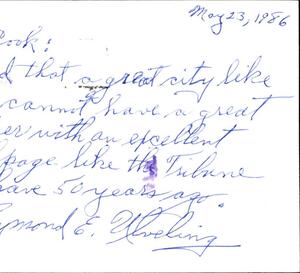 May 23, 1986
ook:
d that a great city like
cannot have a great
er with an excellent
page like the Tribune
ave 50 years ago.
ymond E. Ulveling